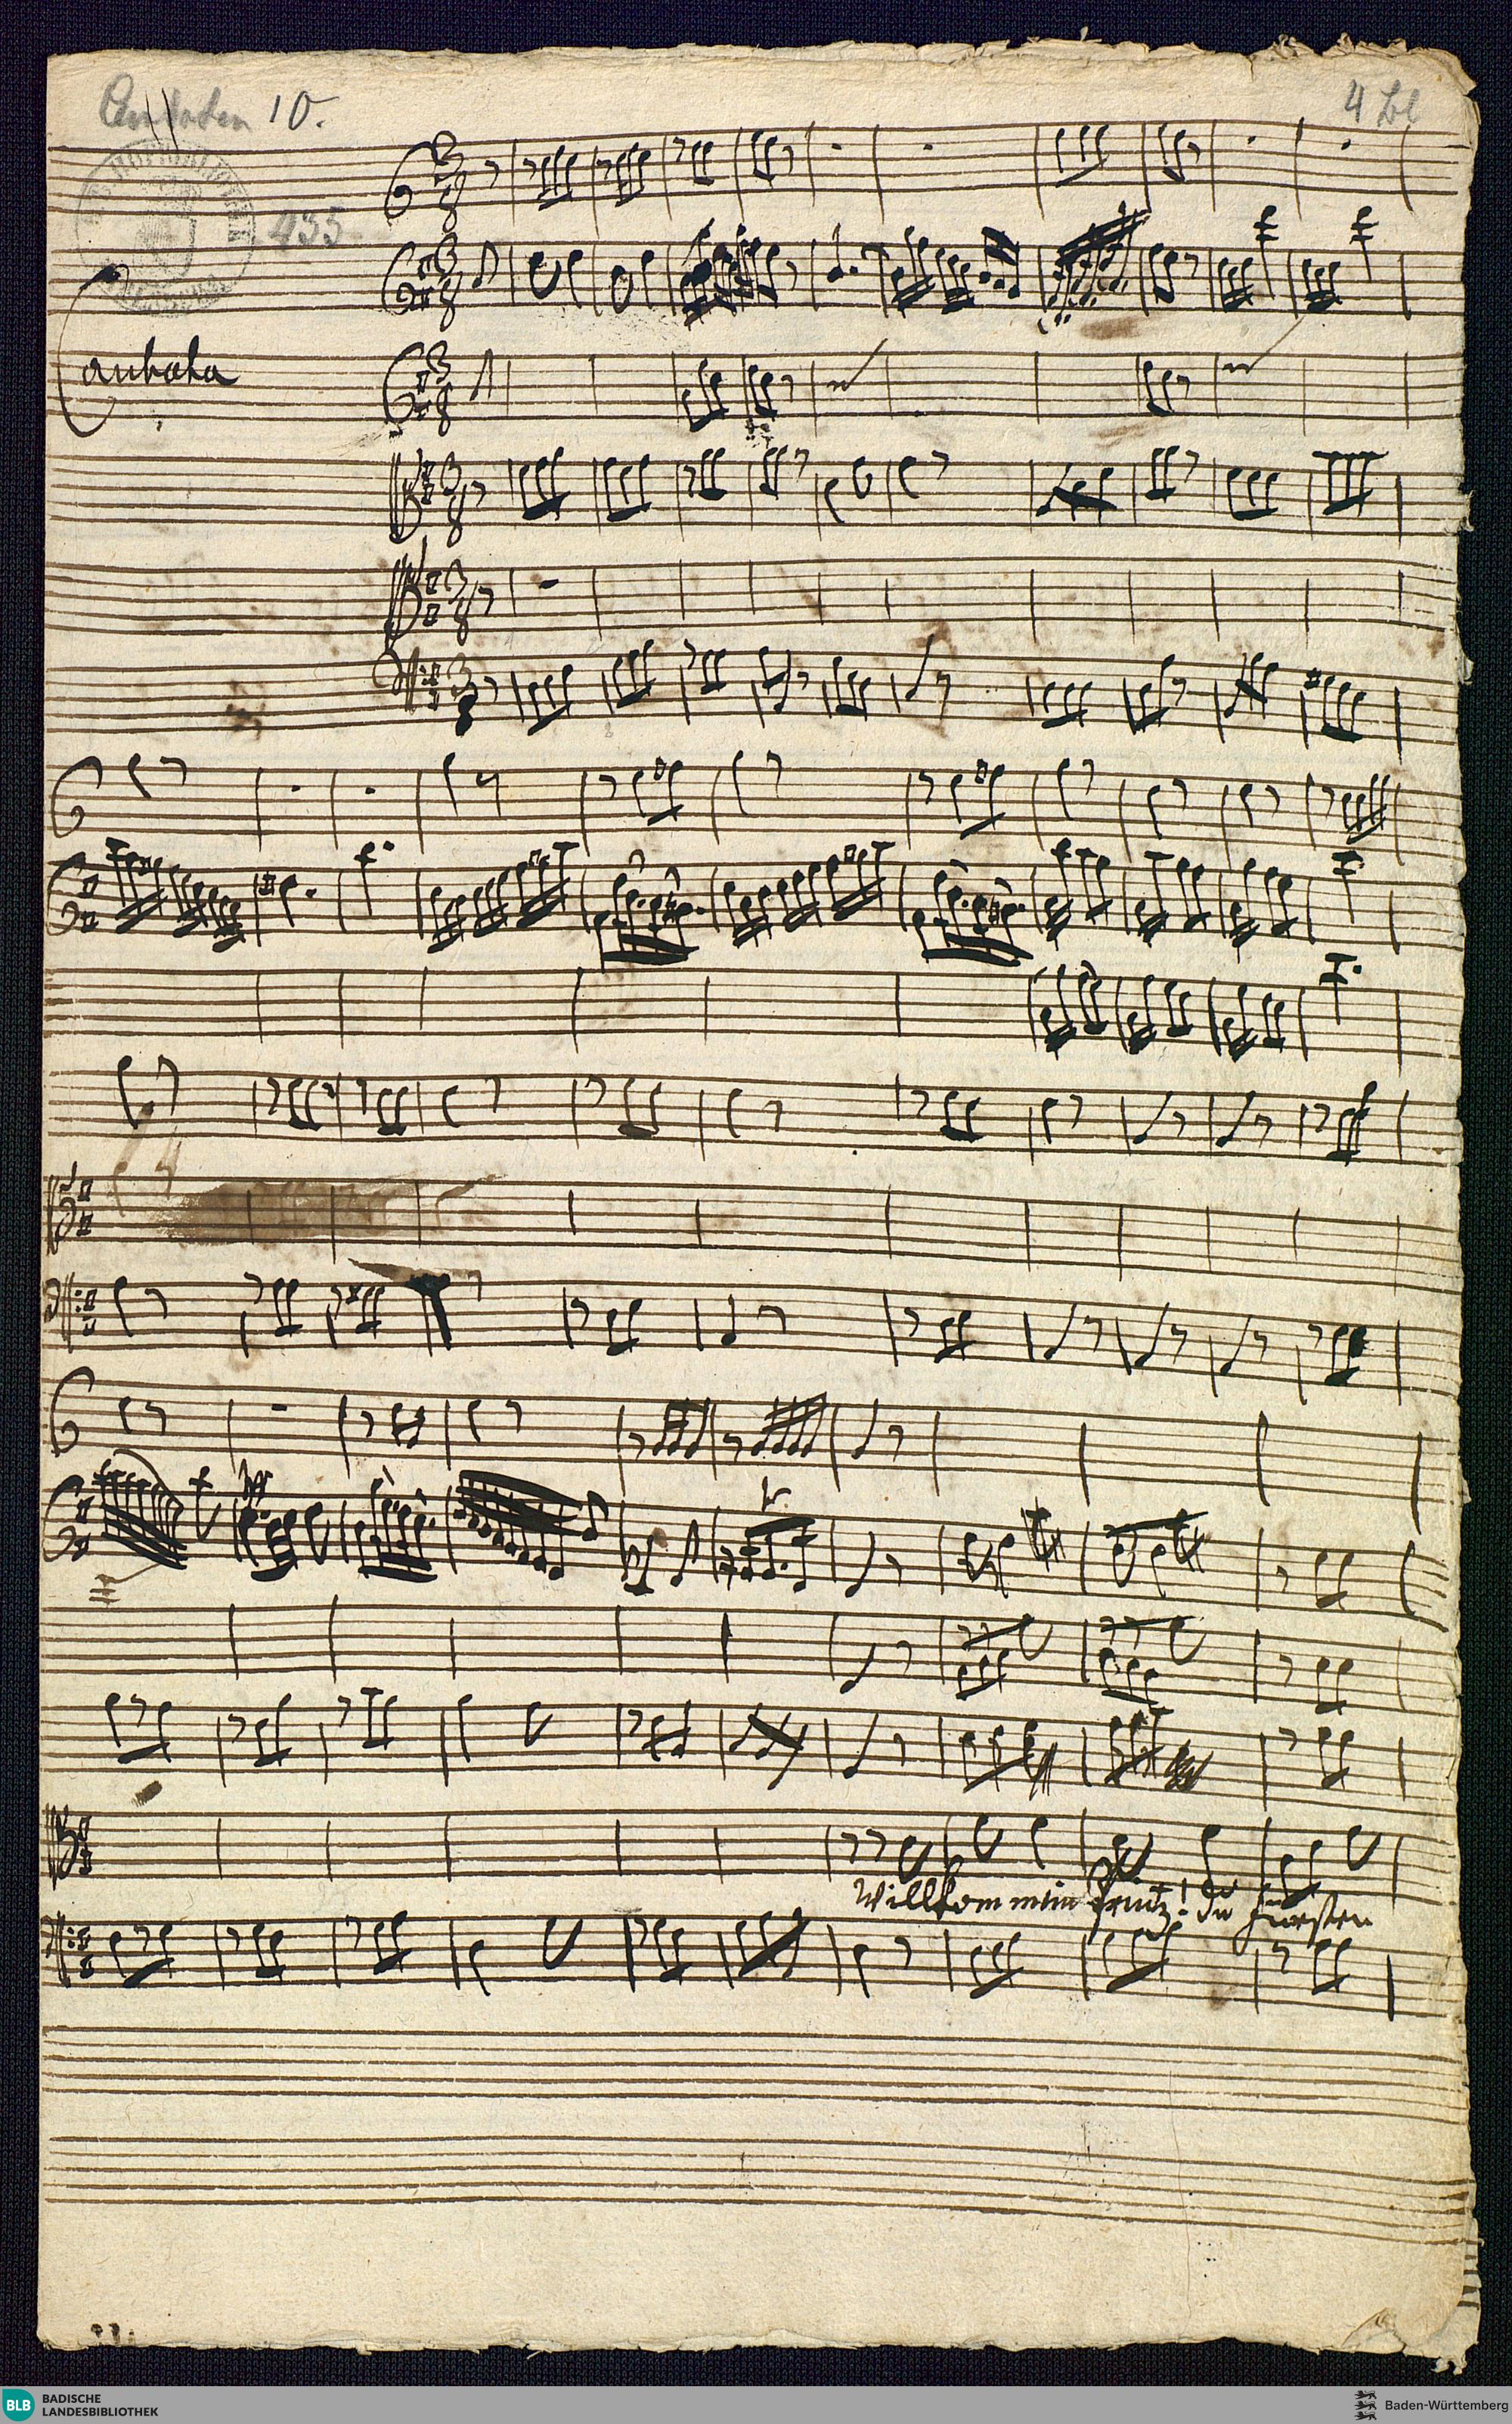 Cantaten 10.
4 Bl
435
Cantata
Willkom mein Printz! du Fürsten
BLB BADISCHE
LANDESBIBLIOTHEK
Baden-Württemberg